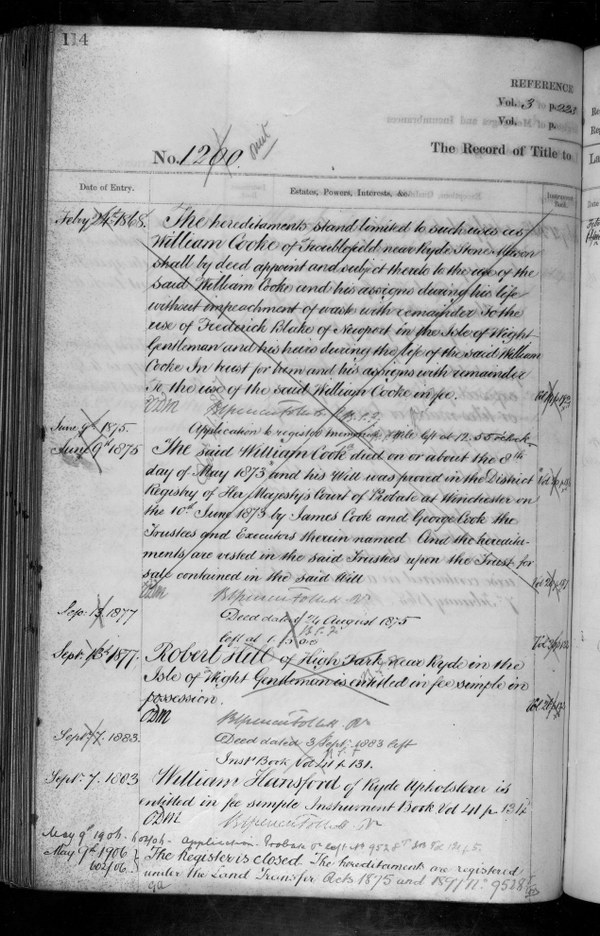 114
REFERENCE
Vol. 3 p. 221
Vol. p.
No. 1200
The Record of Title to
Date of Entry.
Estates, Powers, Interests, &c.
Instrument Book.
Feby 24th 1868.
The hereditaments stand limited to such uses as
William Cooke of near Ryde Stone Mason
shall by deed appoint and subject thereto to the use of the
said William Cooke and his assigns during his life
without impeachment of waste with remainder To the
use of Frederick Blake of Newport in the Isle of Wight
Gentleman and his heirs during the life of the said William
Cooke In trust for him and his assigns with remainder
To the use of the said William Cooke in fee.
June 9th 1875.
Application to register left at 12.55 o'clock
June 9th 1875
The said William Cook died on or about the 8th
day of May 1873 and his Will was proved in the District
Registry of Her Majesty's Court of Probate at Winchester on
the 10th June 1873 by James Cook and George Cook the
Trustees and Executors therein named And the heredita-
ments are vested in the said Trustees upon the Trust for
sale contained in the said Will
Sep: 13. 1877
Deed dated 24 August 1875
left at
Sept. 13th 1877.
Robert Hill of High Park near Ryde in the
Isle of Wight Gentleman is entitled in fee simple in
possession.
ODM
Septr. 7. 1883.
Deed dated 3 Septr. 1883 left
Inst Book Vol 41 p. 131.
Septr. 7. 1883
William Hansford of Ryde Upholsterer is
entitled in fee simple Instrument Book Vol 41 p. 134
ODM
May 9th 1906.
Application Probate
May 9th 1906
602/06
The Register is closed. The hereditaments are registered
under the Land Transfer Acts 1875 and 1897 No. 9528